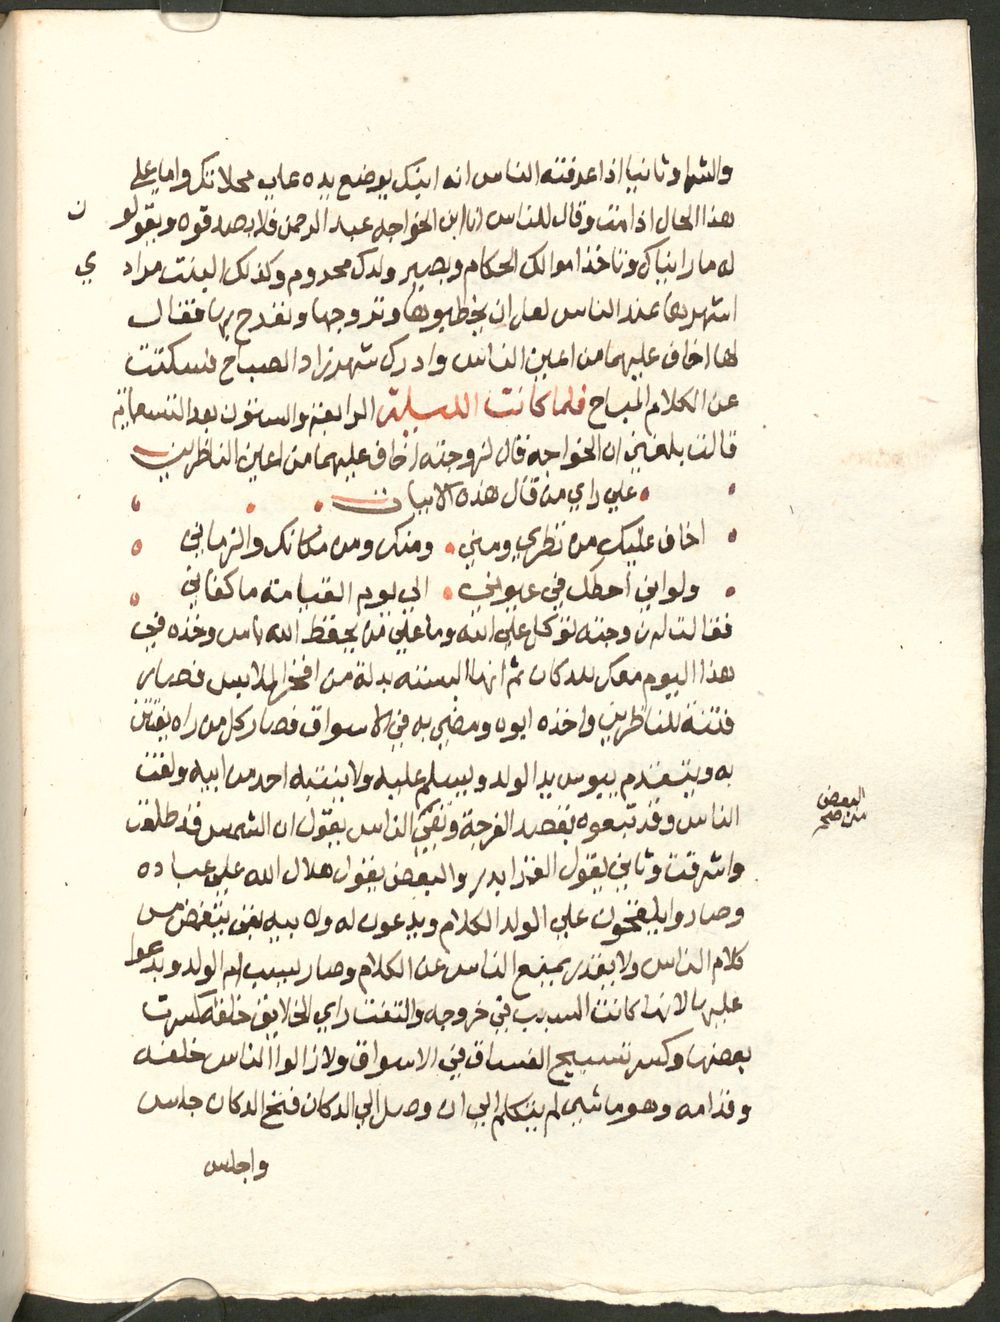 والشرا وثانيا اذا عرفته الناس انه ابنك يوضع يده علي مخلاتك واما علي
هذا الحال اذا مت وقال للناس انا ابن الخواجه عبد الرحمن فلا يصدقوه ويقولون
له ما رايناك وتاخذ اموالك الحكام ويصير ولدك محروم وكذلك البنت مرادي
اشهرها عند الناس لعل ان يخطبوها وتزوجها ونفرح بها فقال
لها اخاف عليهما من اعين الناس وادرك شهرزاد الصباح فسكتت
عن الكلام المباح فلما كانت الليلة الرابعة والستون بعد التسعماية
قالت بلغني ان الخواجه قال لزوجته اخاف عليهما من اعين الناظرين
علي راي من قال هذه الابيات
اخاف عليك من نظري ومني ومنك ومن مكانك والزماني
ولو اني احطك في عيوني الي يوم القيامة ما كفاني
فقالت له زوجته توكل علي الله وما علي من يحفظ الله باس وخذه في
هذا اليوم معك للدكان ثم انها البسته بدلة من افخر الملابس فصار
فتنة للناظرين واخذه ابوه ومضي به في الاسواق فصار كل من راه يفتتن
به ويتقدم يبوس يد الولد ويسلم عليه ولا ينتبه احد من ابيه ولفت
الناس وقد تبعوه بقصد الفرجة وبقي الناس يقول ان الشمس قد طلعت
البعض
من صح
واشرقت وثاني يقول القمر ابدر والبعض يقول هلال الله علي عباده
وصاروا يلقحون علي الولد الكلام ويدعون له ولابيه بقي يتغض من
كلام الناس ولا يقدر يمنع الناس عن الكلام وصار يسب ام الولد ويدعوا
عليها لانها كانت السبب في خروجه والتفت راي الخلايق خلفه كسرت
بعضها وكسر تسبيح الفساق في الاسواق ولا زالوا الناس خلفه
وقدامه وهو ماشي لم يتكلم الي ان وصل الي الدكان فتح الدكان جلس
واجلس